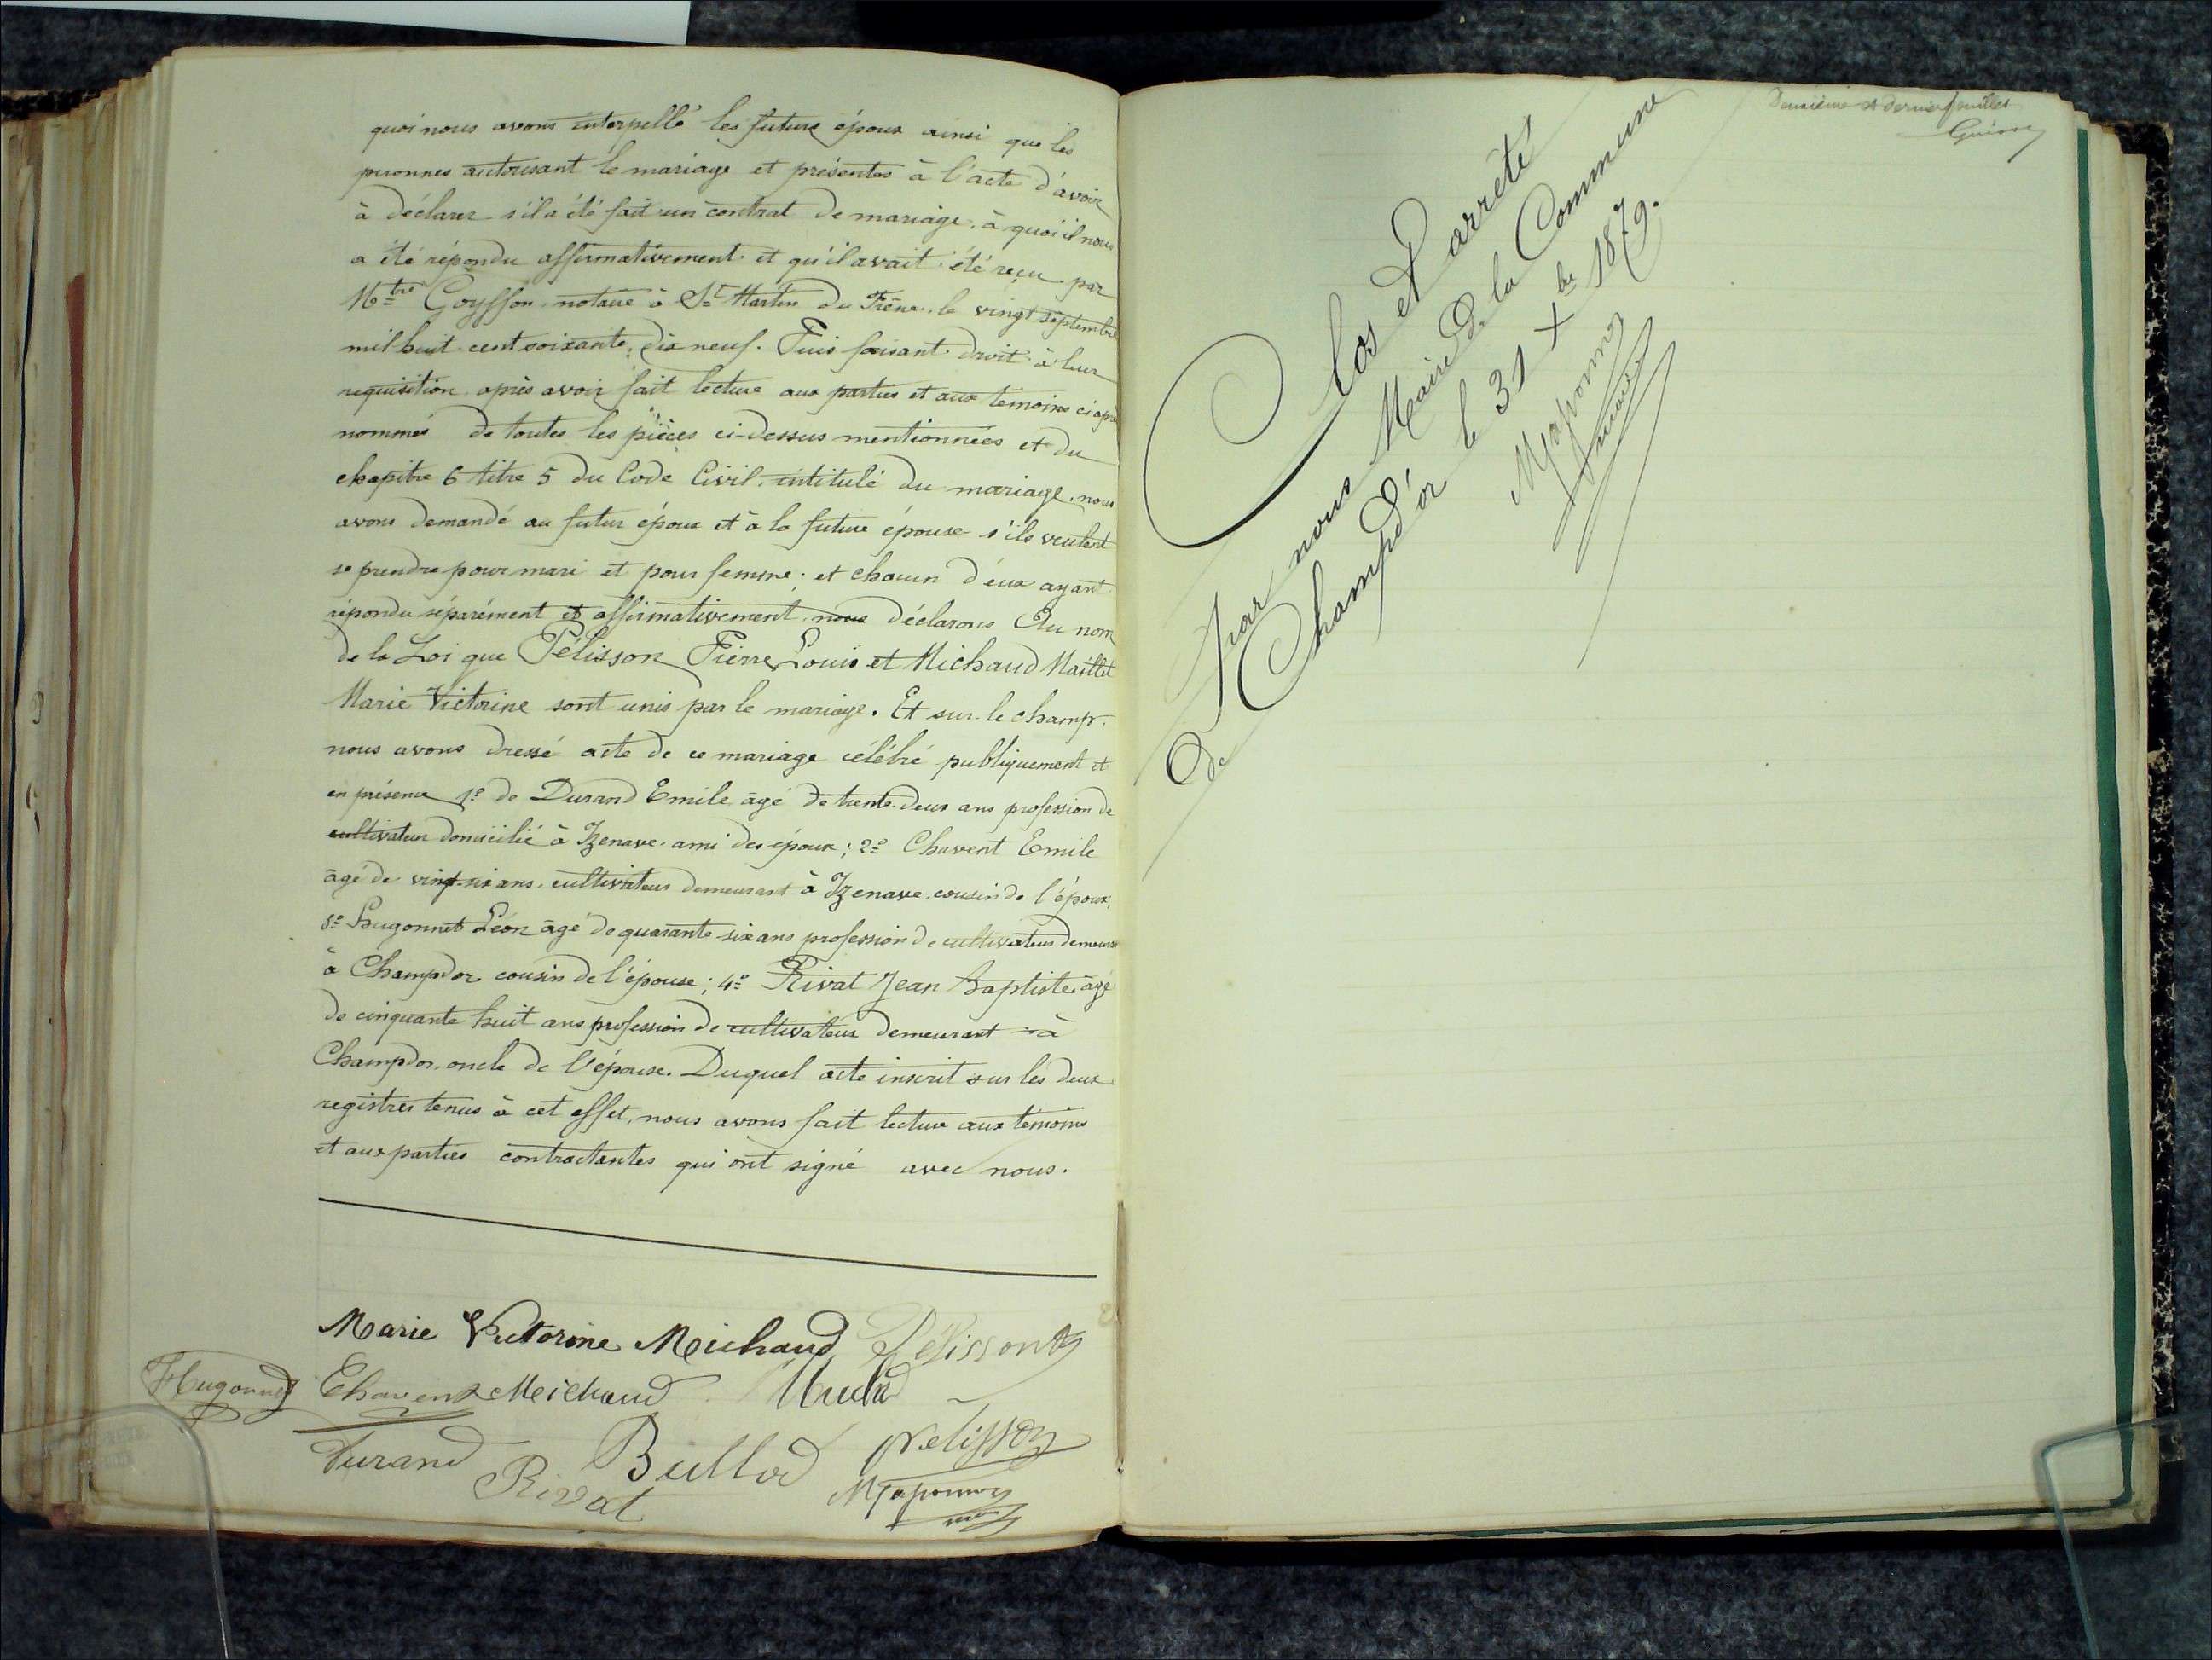 quoi nous avons interpellé les futurs époux ainsi que les
personnes autorisant le mariage et présentes à l'acte d'avoir
à déclarer s'il a été fait un contrat de mariage, à quoi il nous
a été répondu affirmativement et qu'il avait été reçu par
Mtre Goyffon, notaire à St Martin du Frêne, le vingt septembre
mil huit cent soixante dix neuf. Puis faisant droit à leur
requisition après avoir fait lecture aux parties et aux témoins ci après
nommés de toutes les pièces ci-dessus mentionnées et du
chapitre 6 titre 5 du Code Civil, intitulé du mariage, nous
avons demandé au futur époux et à la future épouse s'ils veulent
se prendre pour mari et pour femme; et chacun d'eux ayant
répondu séparément et affirmativement, nous déclarons Au nom
de la Loi que Pélisson Pierre Louis et Michaud Maillet
Marie Victorine sont unis par le mariage. Et sur-le champ,
nous avons dressé acte de ce mariage célébré publiquement et
en présence 1º de Durand Emile âgé de trente-deux ans profession de
cultivateur domicilié à Izenave, ami des époux; 2º Chavent Emile
âgé de vingt-six ans, cultivateur demeurant à Izenave, cousin de l'époux,
3º Hugonnet Léon âgé de quarante-six ans profession de cultivateur demeurant
à Champdor cousin de l'épouse; 4º Rivat Jean Baptiste, âgé
de cinquante huit ans profession de cultivateur demeurant à
Champdor, oncle de l'épouse. Duquel acte inscrit sur les deux
registres tenus à cet effet, nous avons fait lecture aux témoins
et aux parties contractantes qui ont signé avec nous.
Marie Victorine Michaud Pélisson
Hugonnet Chavent Michaud
Durand Bullod Pélisson
Rivat
Deuxième et dernier feuillet
Clos et arrêté
Par nous Maire de la Commune
de Champd'or le 31 Xbre 1879.